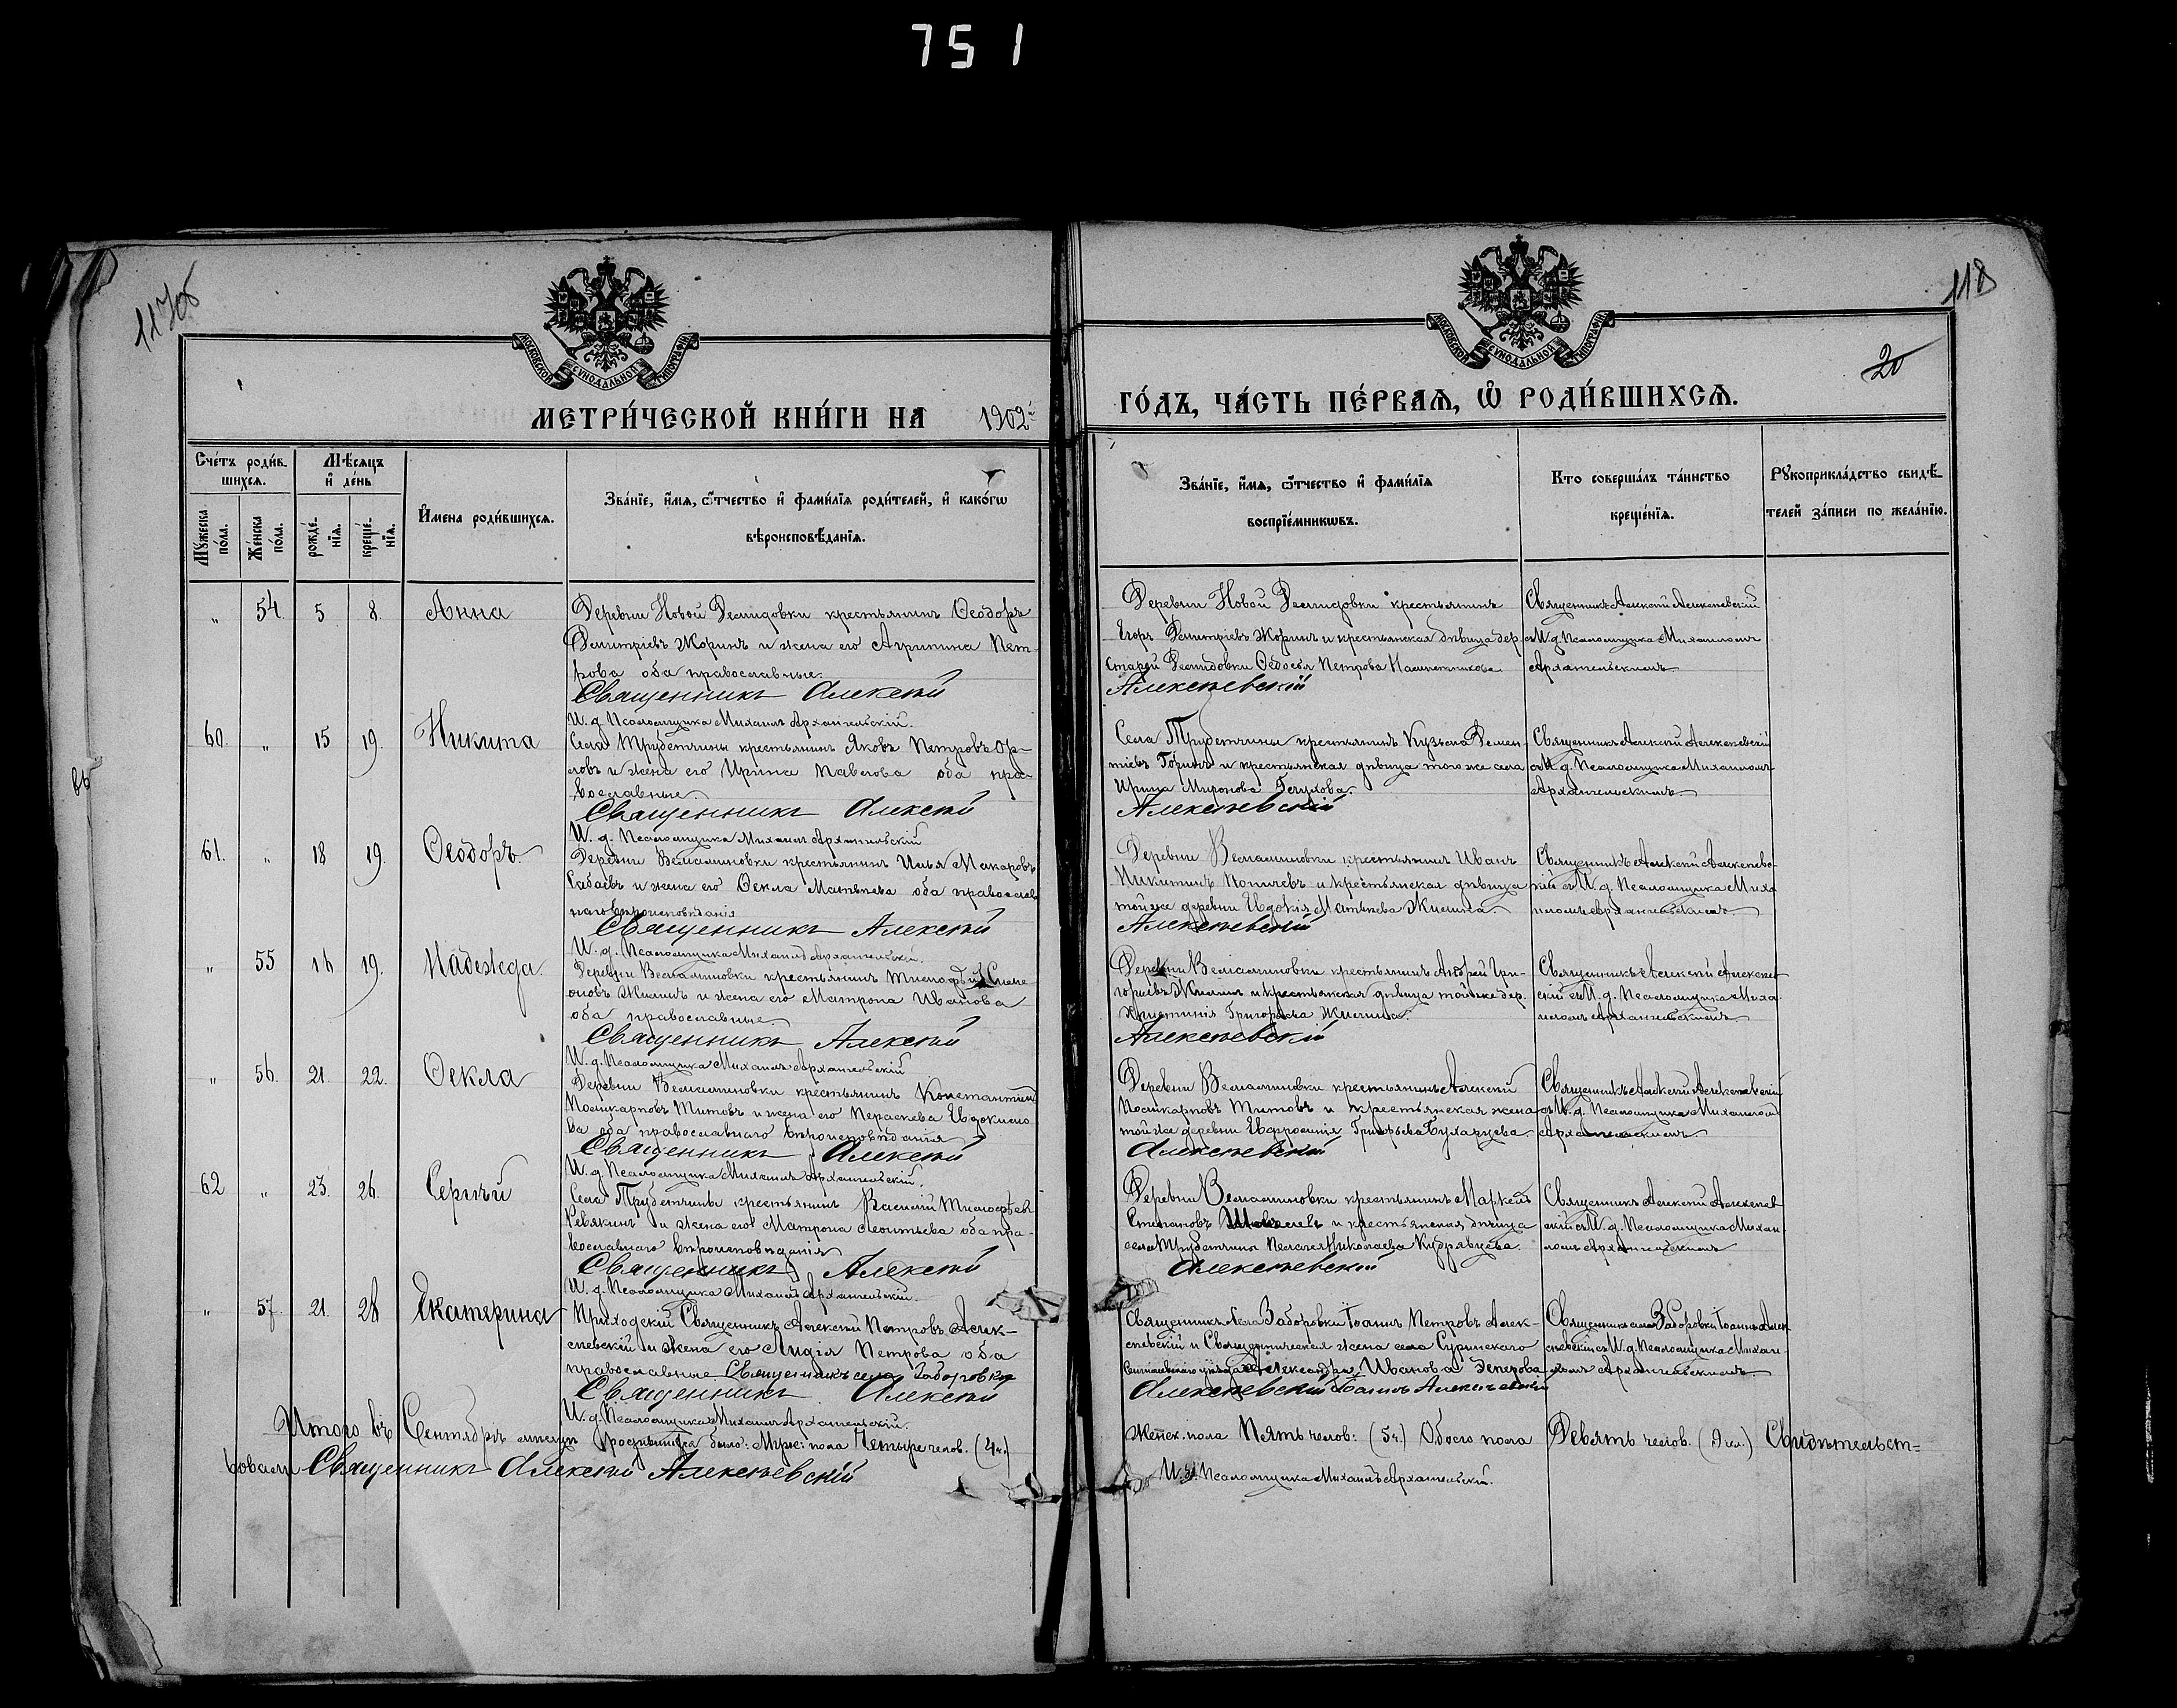 751
117об
118
20
МОСКОВСКОЙ СѴНОДАЛЬНОЙ ТИПОГРАФІИ
МОСКОВСКОЙ СѴНОДАЛЬНОЙ ТИПОГРАФІИ
МЕТРИ́ЧЕСКОЙ КНИ́ГИ НА 1902й
ГО́ДЪ, ЧА́СТЬ ПЕ́РВАѦ, Ѡ҆ РОДИ́ВШИХСѦ.
Сче́тъ роди́в-
шихсѧ.
Мѣ́сѧцъ
и҆ де́нь
Мꙋ́жеска
по́ла.
Же́нска
по́ла.
рожде́-
нїѧ.
креще́-
нїѧ.
И҆мена роди́вшихсѧ.
Зва́нїе, и҆́мѧ, ѻ҆́тчество и҆ фами́лїѧ роди́телей, и҆ како́гѡ
вѣроисповѣ́данїѧ.
Зва́нїе, и҆́мѧ, ѻ҆́тчество и҆ фами́лїѧ
воспрїе́мникѡвъ.
Кто соверша́лъ та́инство
креще́нїѧ.
Рꙋкоприкла́дство свидѣ́-
телей за́писи по жела́нїю.
" 54. 5 8. Анна
Деревни Новой Демидовки крестьянинъ Ѳеодоръ
Димитріевъ Жоринъ и жена его Агрипина Пет-
рова оба православные.
Священникъ Алексѣй
И. д. Псаломщика Михаилъ Архангельскій.
Деревни Новой Демидовки крестьянинъ
Егоръ Димитріевъ Жоринъ и крестьянская дѣвица дер.
Старой Демидовки Ѳедосья Петрова
Алексѣевскій
Священникъ Алексѣй Алексѣевскій
съ И. д. Псаломщика Михаиломъ
Архангельскимъ
60. " 15 19. Никита
Села Трубетчины крестьянинъ Яковъ Петровъ Ор-
ловъ и жена его Ирина Павлова оба пра-
вославные.
Священникъ Алексѣй
И. д. Псаломщика Михаилъ Архангельскій
Села Трубетчины крестьянинъ Кузьма Демен-
тіевъ Горинъ и крестьянская дѣвица того же села
Ирина Миронова
Алексѣевскій
Священникъ Алексѣй Алексѣевскій
съ И. д. Псаломщика Михаиломъ
Архангельскимъ.
61. " 18 19. Ѳеодоръ.
Деревни Вельяминовки крестьянинъ Илья Макаровъ
и жена его Ѳекла Матвѣева оба православ
наго вѣроисповѣданія
Священникъ Алексѣй
И. д. Псаломщика Михаилъ Архангельскій.
Деревни Вельяминовки крестьянинъ Иванъ
Никитинъ и крестьянская дѣвица
той же деревни Евдокія Матвѣева Жилина.
Алексѣевскій
Священникъ Алексѣй Алексѣевс-
кій съ И. д. Псаломщика Миха
иломъ Архангельскимъ.
" 55 16 19. Надежда.
Деревни Вельяминовки крестьянинъ Тимофѣй Симе
оновъ Жилинъ и жена его Матрона Иванова
оба православные.
Священникъ Алексѣй
И. д. Псаломщика Михаилъ Архангельскій
Деревни Вельяминовки крестьянинъ Андрей Гри-
горьевъ Жилинъ и крестьянская дѣвица той же дер.
Христинія Григорьева Жилина.
Алексѣевскій
Священникъ Алексѣй Алексѣев
скій съ И. д. Псаломщика Миха
иломъ Архангельскимъ.
" 56. 21. 22. Ѳекла
Деревни Вельяминовки крестьянинъ Константинъ
Поликарповъ Титовъ и жена его Параскева Евдокимо
ва оба православнаго вѣроисповѣданія
Священникъ Алексѣй
И. д. Псаломщика Михаилъ Архангельскій.
Деревни Вельяминовки крестьянинъ Алексѣй
Поликарповъ Титовъ и крестьянская жена
той же деревни Евфросинія Бухарцева.
Алексѣевскій
Священникъ Алексѣй Алексѣевскій
съ И. д. Псаломщика Михаиломъ
Архангельскимъ.
62 " 23. 26. Сергѣй
Села Трубетчины крестьянинъ Василій Тимофѣевъ
Ревякинъ и жена его Матрона Леонтьева оба пра-
вославнаго вѣроисповѣданія
Священникъ Алексѣй
И. д. Псаломщика Михаилъ Архангельскій.
Деревни Вельяминовки крестьянинъ Маркелъ
Степановъ и крестьянская дѣвица
села Трубетчины Пелагея Николаева Кудрявцева.
Алексѣевскій
Священникъ Алексѣй Алексѣев
скій съ И. д. Псаломщика Михаи
ломъ Архангельскимъ
" 57. 21. 28 Екатерина
Приходскій Священникъ Алексѣй Петровъ Алек-
сѣевскій и жена его Лидія Петрова оба
православные. Священникъ села Заборовки
Священникъ Алексѣй
И. д. Псаломщика Михаилъ Архангельскій.
Священникъ села Заборовки Іоаннъ Петровъ Алек-
сѣевскій и Священническая жена села Суринскаго
уѣзда Александра Иванова
Алексѣевскій Іоаннъ Алексѣевскій
Священникъ села Заборовки Іоаннъ Алек
сѣевскій съ И. д. Псаломщика Михаи-
ломъ Архангельскимъ.
Итого въ Сентябрѣ мѣсяцѣ родившихся было: Муж: пола Четыре челов. (4 ч.) Женск. пола Пять челов: (5 ч.) Обоего пола Девять челов. (9 чел.) Свидѣтельст=
вовали Священникъ Алексѣй Алексѣевскій
И. д. Псаломщика Михаилъ Архангельскій.